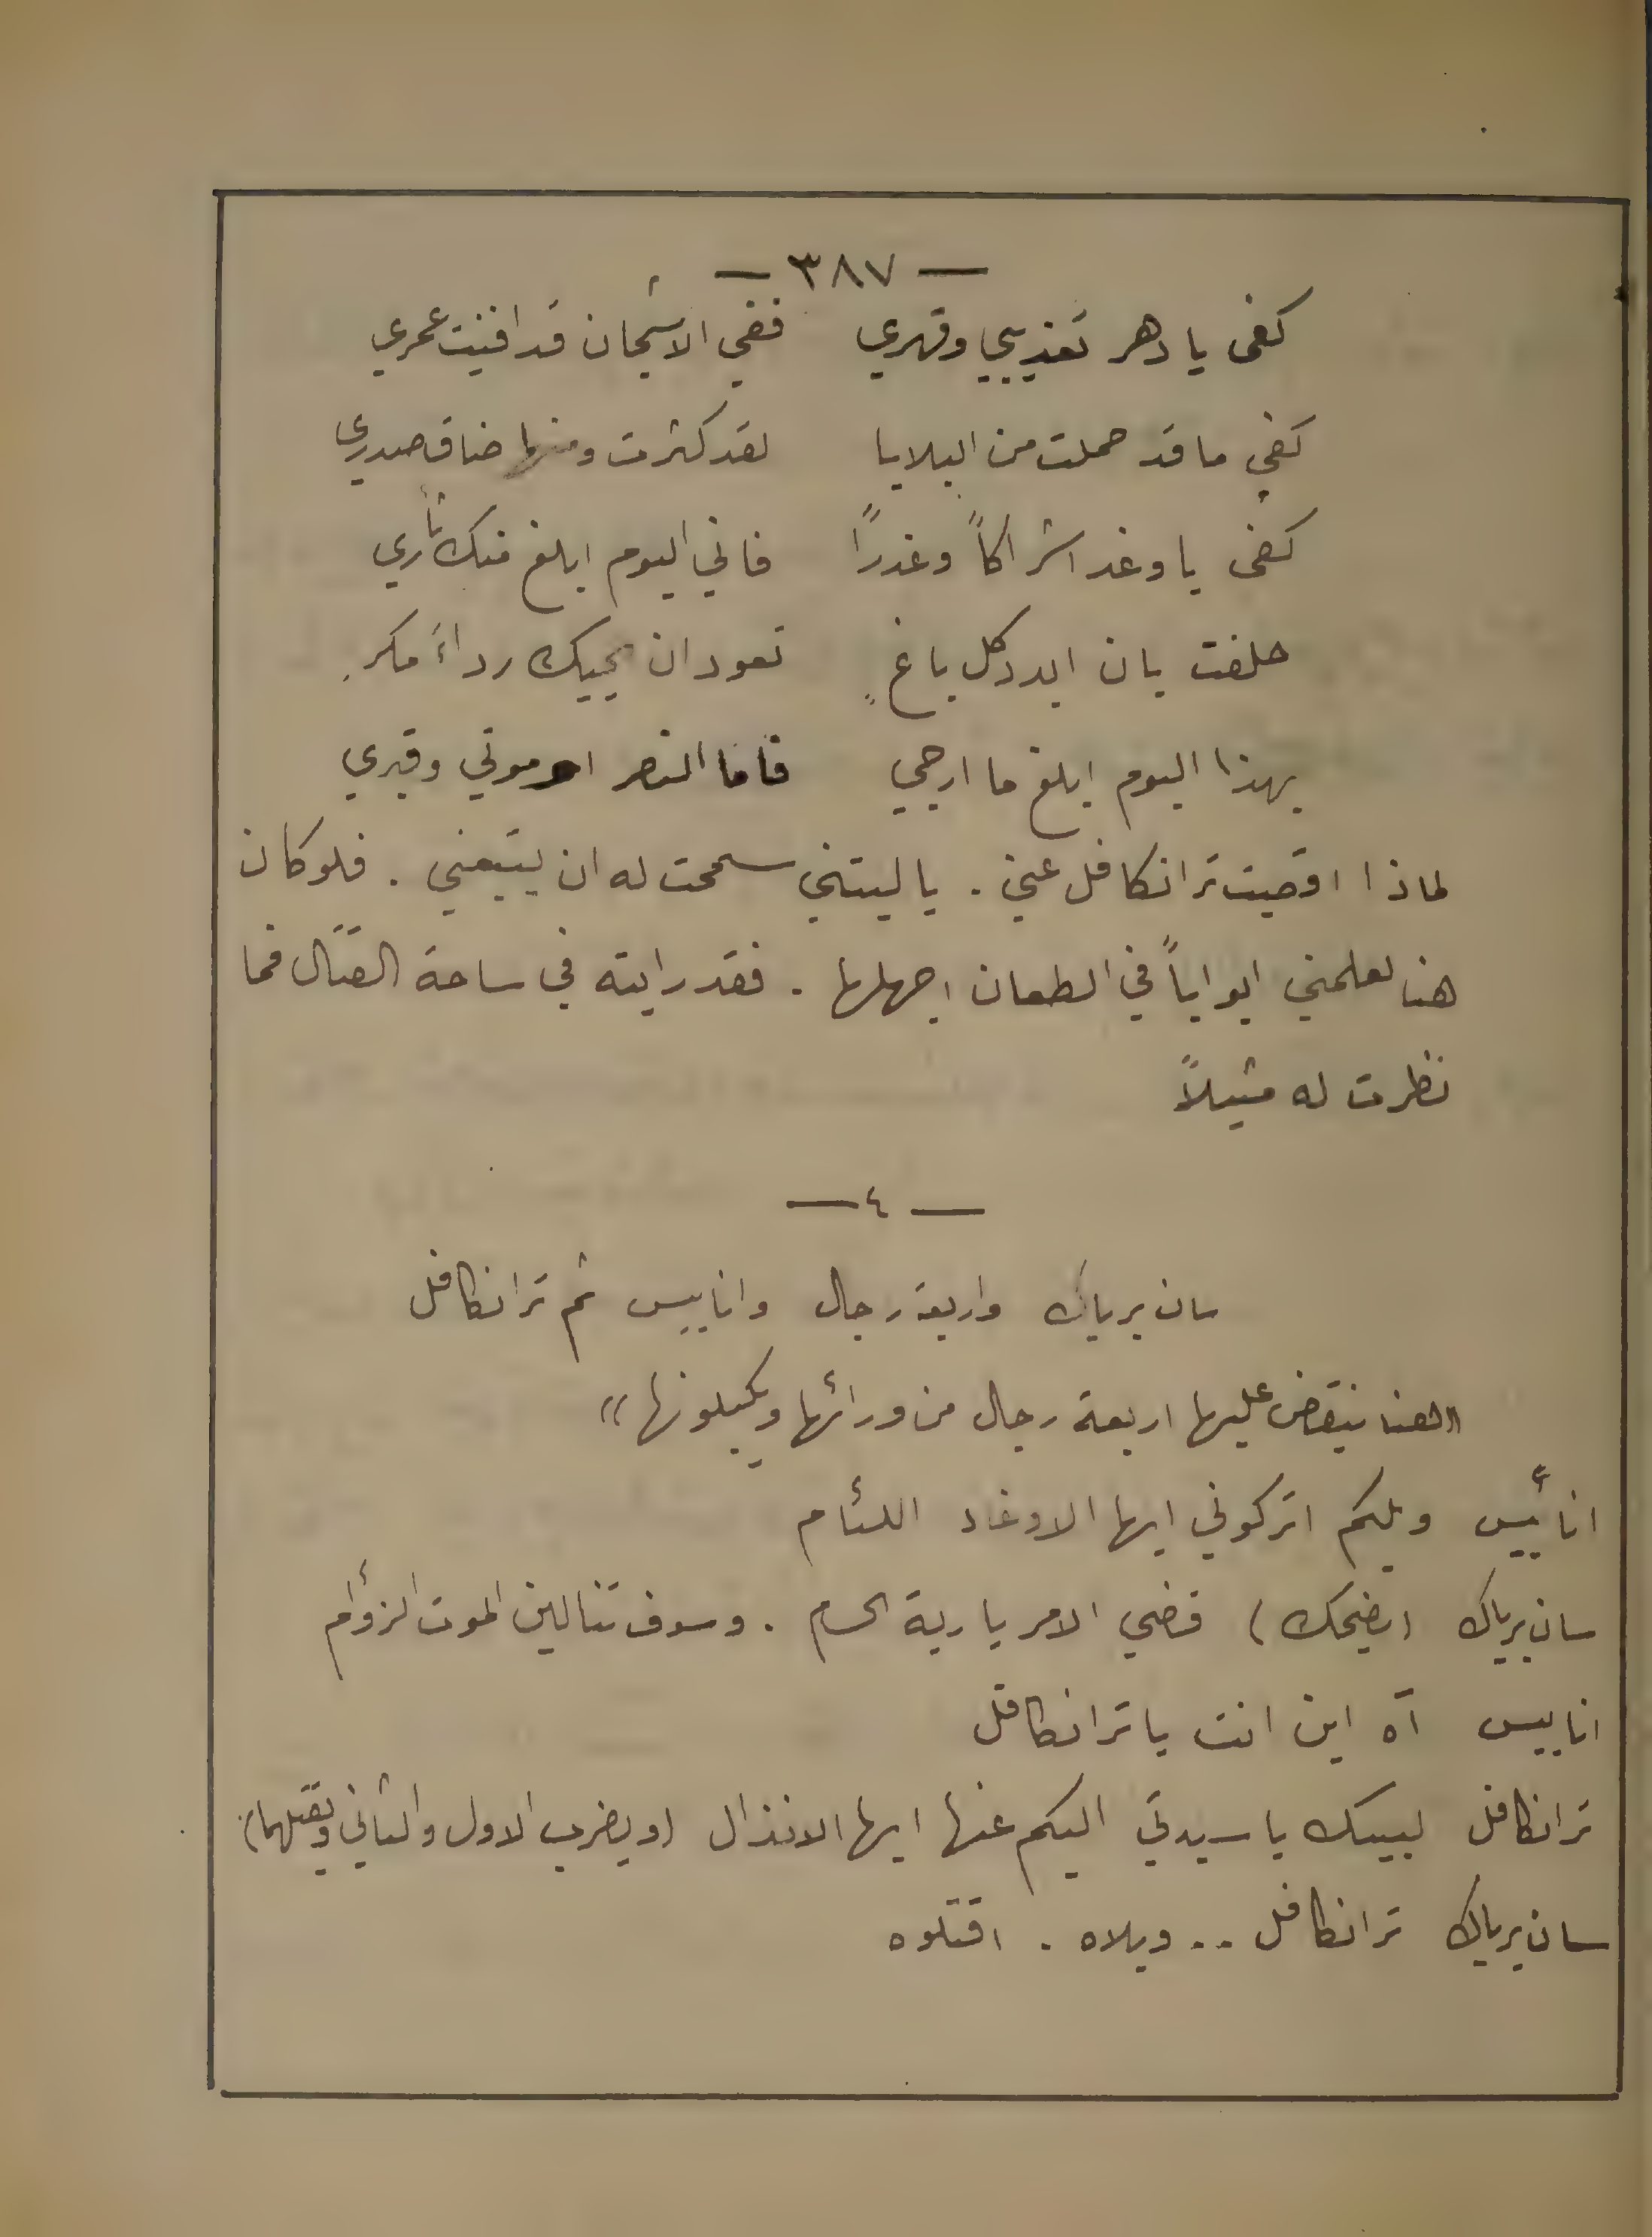 — ٣٨٧ —
كفى يا دهر تعذيبي وقهري ففي الاشجان قد افنيت عمري
كفى ما قد حملت من البلايا لقد كثرت ومنها ضاق صدري
كفى يا وغد اشراكاً وغدراً فاني اليوم ابلغ منك ثأري
حلفت بان ابدد كل باغٍ تعود ان يحيك رداءَ مكر
بهذا اليوم ابلغ ما ارجي فاما النصر او موتي وقبري
لماذا اقصيت ترانكافل عني . يا ليتني سمحت له ان يتبعني . فلو كان
هنا لعلمني ابواباً في الطعان اجهلها . فقد رايته في ساحة القتال فما
نظرت له مثيلاً
— ٤ —
سان برياك واربعة رجال وانابيس ثم ترانكافل
«هنا ينقض عليها اربعة رجال من ورائها ويكبلونها»
انائيس ويلكم اتركوني ايها الاوغاد اللئام
سان برياك (يضحك) قضي الامر يا ربة الحسام . وسوف تنالين الموت الزؤام
انابيس آه اين انت يا ترانكافل
ترانكافل لبيك يا سيدتي اليكم عنها ايها الانذال (ويضرب الاول والثاني ويقتلهما)
سان برياك ترانكافل .. ويلاه . اقتلوه